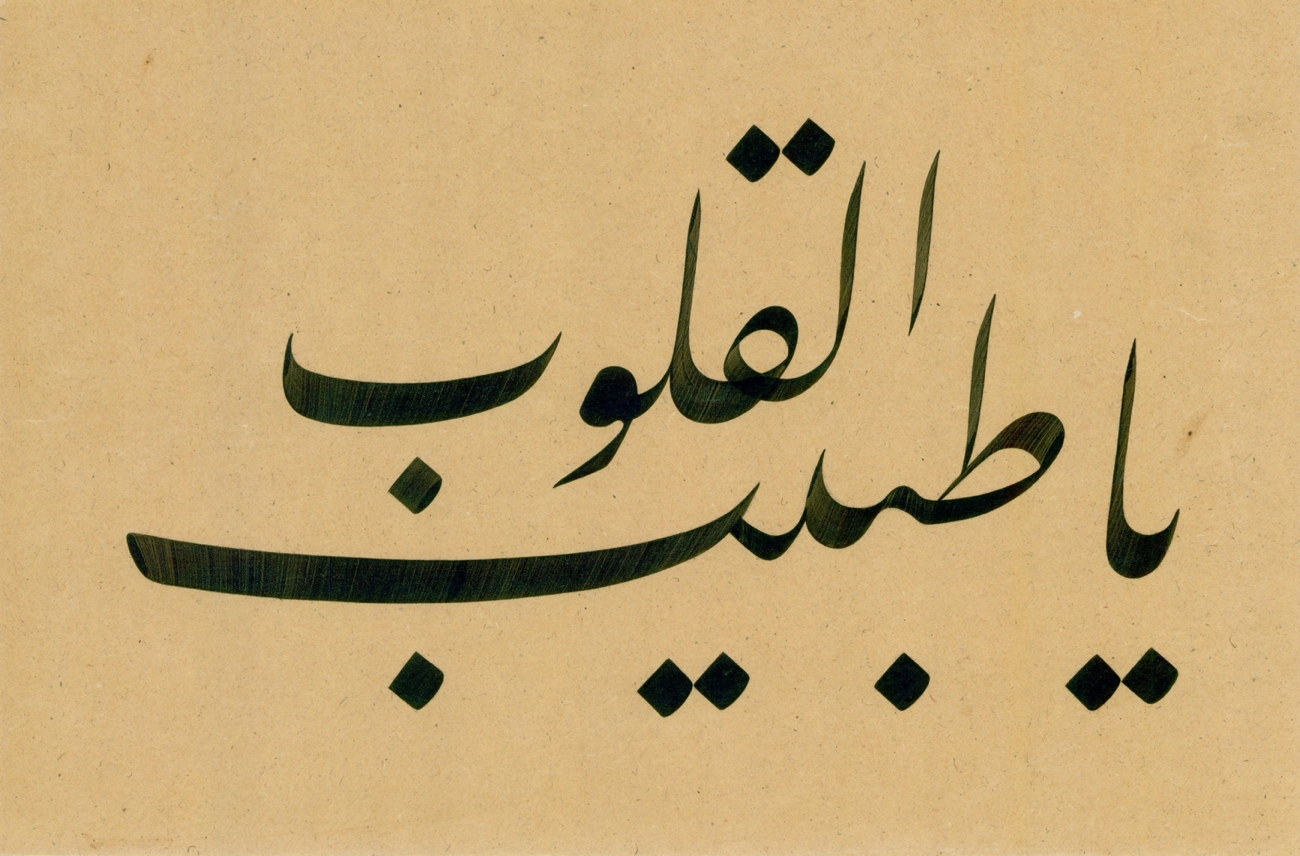 يا طبيب القلوب